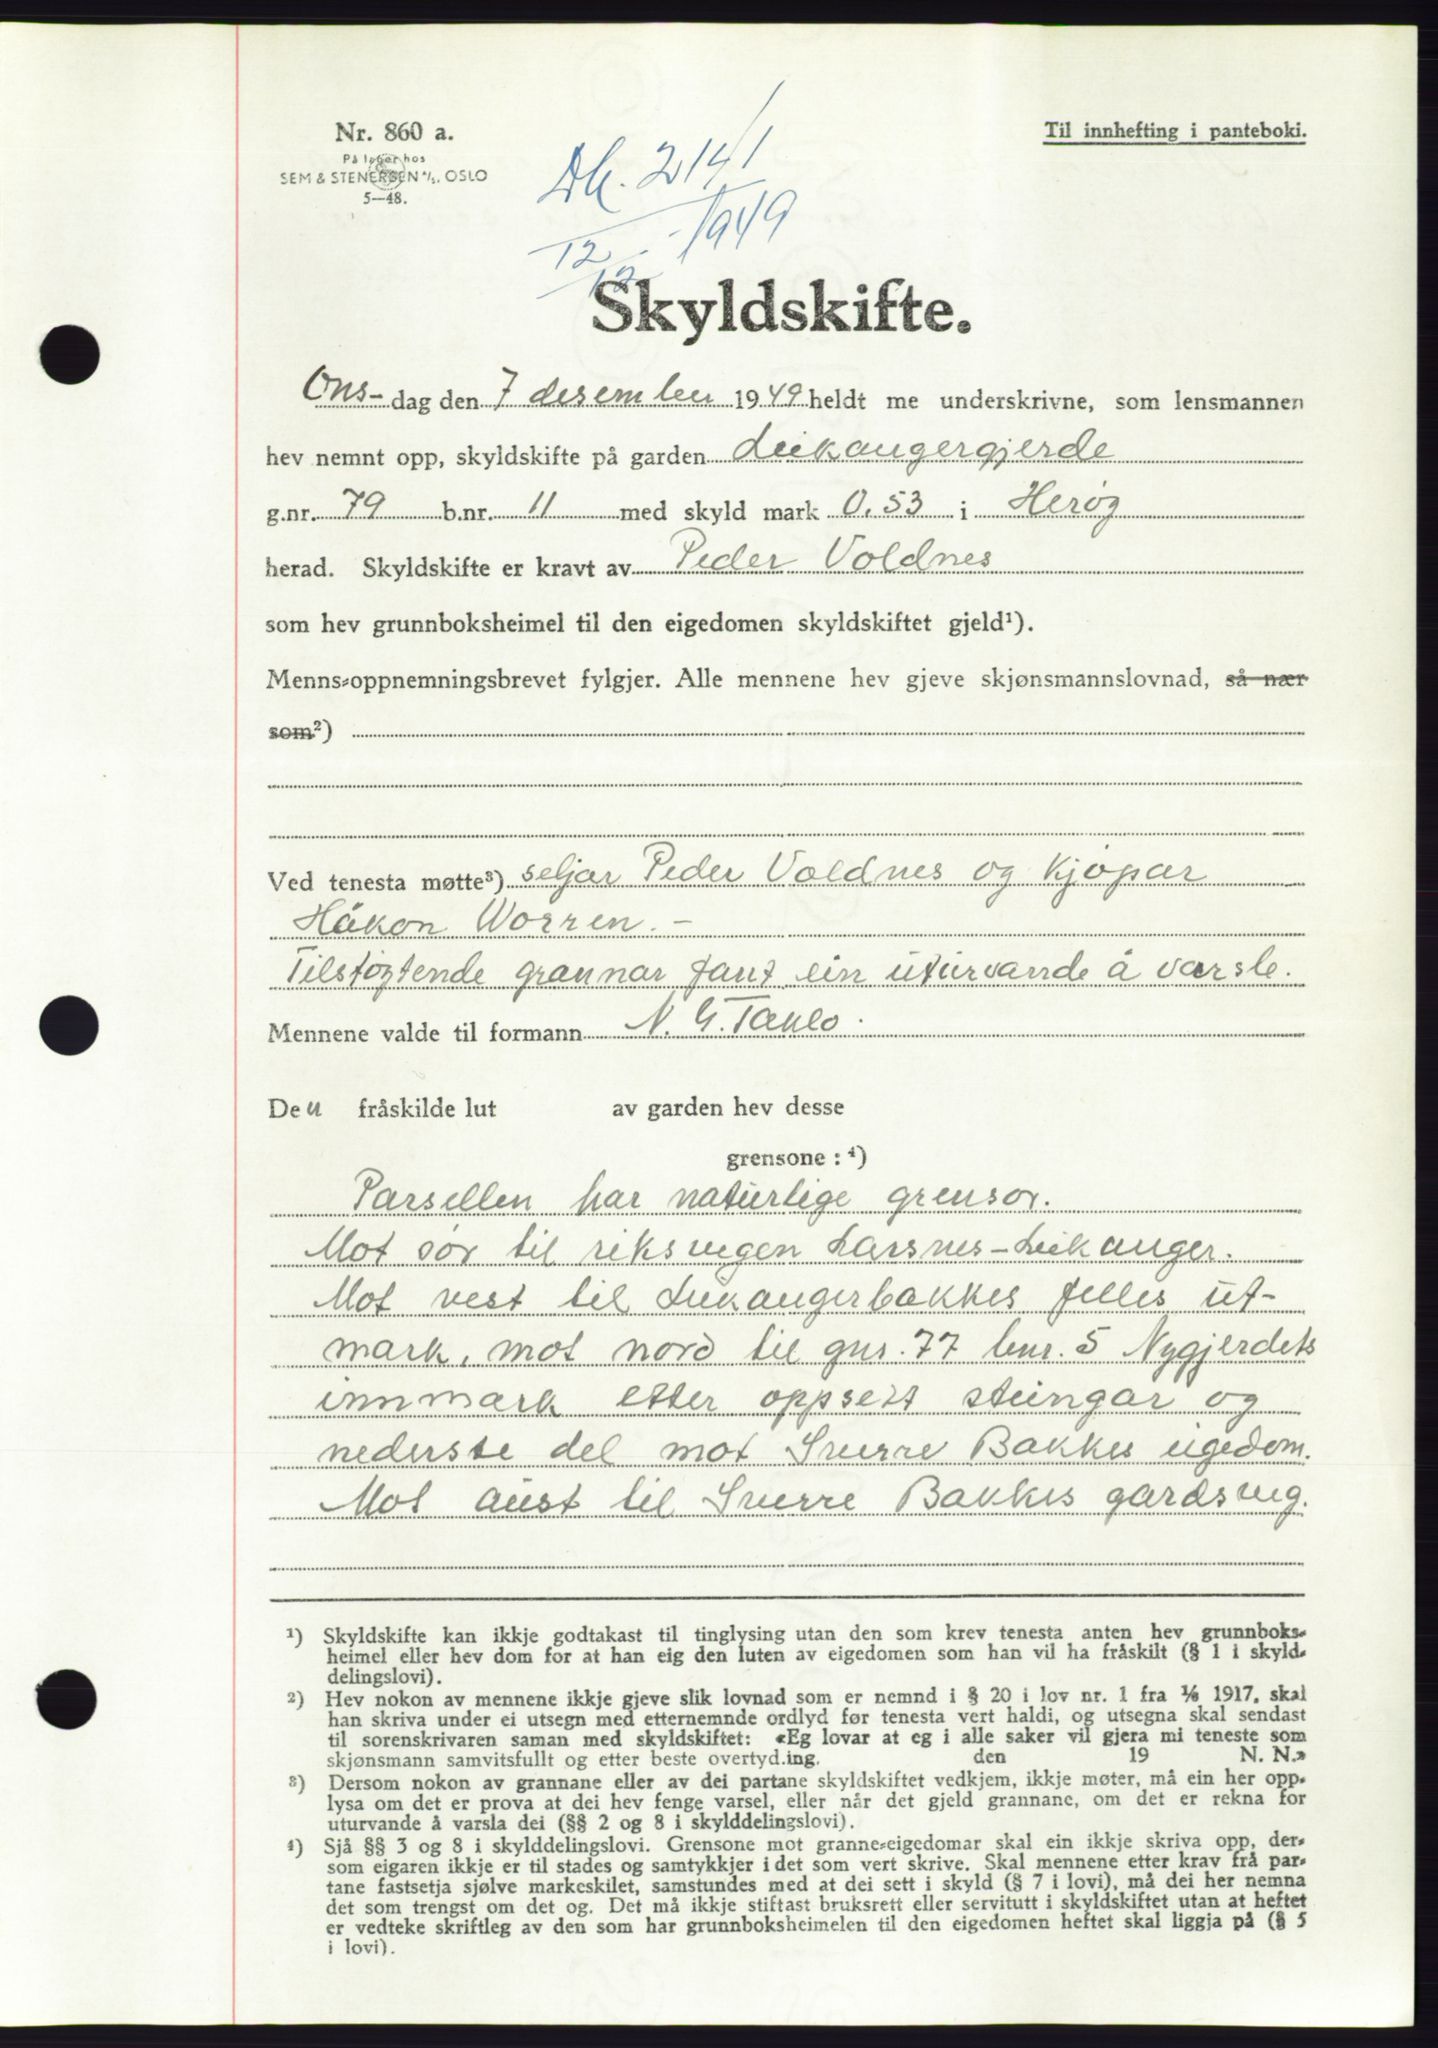 Nr. 860 a.
På lager hos
SEM & STENERSEN A/S. OSLO
5—48.
Til innhefting i panteboki.
Dk. 2141
12/12 - 1949
Skyldskifte.
Ons- dag den 7 desember 1949 heldt me underskrivne, som lensmannen
hev nemnt opp, skyldskifte på garden Leikangergjerde
g.nr. 79 b.nr. 11 med skyld mark 0.53 i Herøy
herad. Skyldskifte er kravt av Peder Voldnes
som hev grunnboksheimel til den eigedomen skyldskiftet gjeld¹).
Menns-oppnemningsbrevet fylgjer. Alle mennene hev gjeve skjønsmannslovnad, så nær
som²)
Ved tenesta møtte³) seljar Peder Voldnes og kjøpar
Håkon Worren. -
Tilstøytende grannar fant ein uturvande å varsle.
Mennene valde til formann N. G. Taklo.
Den fråskilde lut av garden hev desse
grensone : ⁴)
Parsellen har naturlige grensor.
Mot sør til riksvegen Larsnes - Leikanger.
Mot vest til Leikangerbakkes felles ut-
mark, mot nord til gnr. 77 bnr. 5 Nygjerdets
innmark etter oppsett steingar og
nederste del mot Sverre Bakkes eigedom.
Mot aust til Sverre Bakkes gardsveg.
¹) Skyldskifte kan ikkje godtakast til tinglysing utan den som krev tenesta anten hev grunnboks-
heimel eller hev dom for at han eig den luten av eigedomen som han vil ha fråskilt (§ 1 i skyld-
delingslovi).
²) Hev nokon av mennene ikkje gjeve slik lovnad som er nemnd i § 20 i lov nr. 1 fra ¹/₆ 1917, skal
han skriva under ei utsegn med etternemnde ordlyd før tenesta vert haldi, og utsegna skal sendast
til sorenskrivaren saman med skyldskiftet: «Eg lovar at eg i alle saker vil gjera mi teneste som
skjønsmann samvitsfullt og etter beste overtyd.ing. den 19 N. N.»
³) Dersom nokon av grannane eller av dei partane skyldskiftet vedkjem, ikkje møter, må ein her opp-
lysa om det er prova at dei hev fenge varsel, eller når det gjeld grannane, om det er rekna for
uturvande å varsla dei (§§ 2 og 8 i skylddelingslovi).
⁴) Sjå §§ 3 og 8 i skylddelingslovi. Grensone mot granne-eigedomar skal ein ikkje skriva opp, der-
som eigaren ikkje er til stades og samtykkjer i det som vert skrive. Skal mennene etter krav frå par-
tane fastsetja sjølve markeskilet, samstundes med at dei sett i skyld (§ 7 i lovi), må dei her nemna
det som trengst om det og. Det må ikkje stiftast bruksrett eller servitutt i skyldskiftet utan at heftet
er vedteke skriftleg av den som har grunnboksheimelen til den eigedomen heftet skal liggja på (§ 5
i lovi).